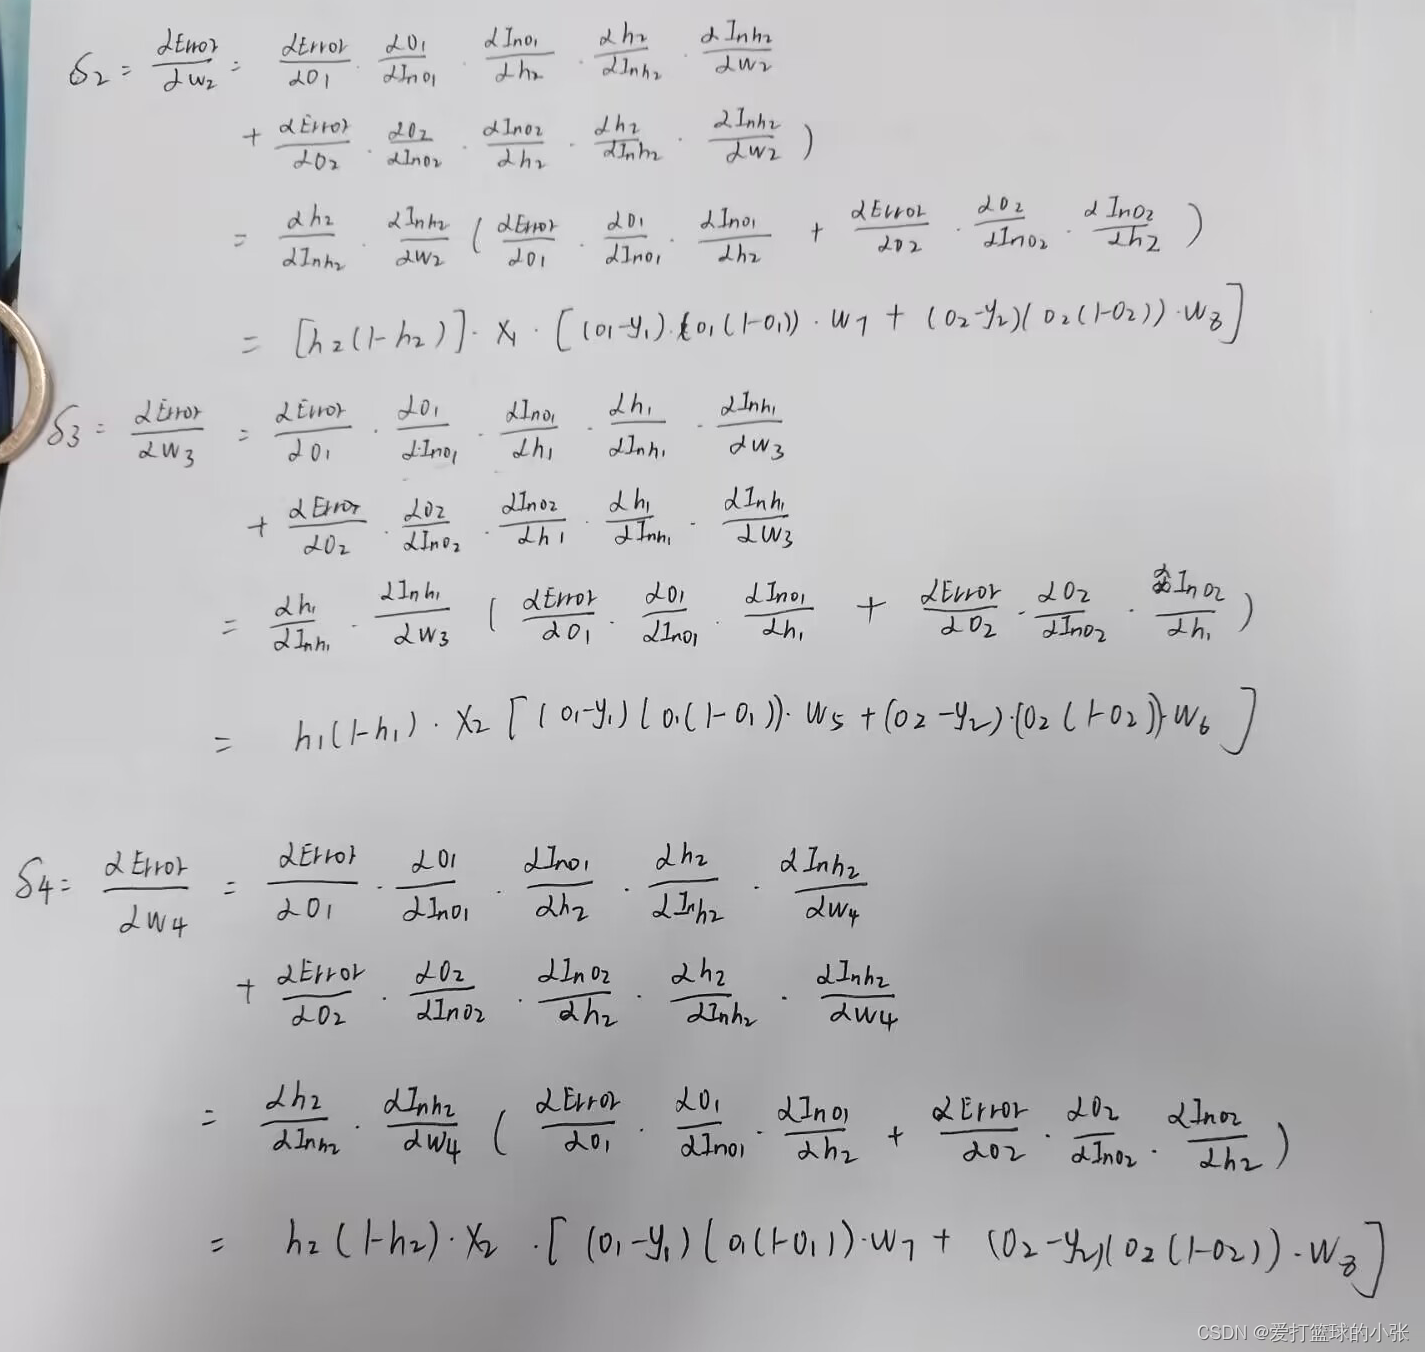 δ2 = αError/αw2 = αError/αO1 · αO1/αIno1 · αIno1/αh2 · αh2/αInh2 · αInh2/αw2
+ αError/αO2 · αO2/αIno2 · αIno2/αh2 · αh2/αInh2 · αInh2/αw2 )
= αh2/αInh2 · αInh2/αw2 ( αError/αO1 · αO1/αIno1 · αIno1/αh2 + αError/αO2 · αO2/αIno2 · αIno2/αh2 )
= [h2(1-h2)] · X1 · [(o1-y1)·(o1(1-o1)) · w7 + (o2-y2)(o2(1-o2)) · w8]
δ3 = αError/αw3 = αError/αO1 · αO1/αIno1 · αIno1/αh1 · αh1/αInh1 · αInh1/αw3
+ αError/αO2 · αO2/αIno2 · αIno2/αh1 · αh1/αInh1 · αInh1/αw3
= αh1/αInh1 · αInh1/αw3 ( αError/αO1 · αO1/αIno1 · αIno1/αh1 + αError/αO2 · αO2/αIno2 · αIno2/αh1 )
= h1(1-h1) · X2 [(o1-y1)(o1(1-o1)) · w5 + (o2-y2)·(o2(1-o2)) w6]
δ4 = αError/αw4 = αError/αO1 · αO1/αIno1 · αIno1/αh2 · αh2/αInh2 · αInh2/αw4
+ αError/αO2 · αO2/αIno2 · αIno2/αh2 · αh2/αInh2 · αInh2/αw4
= αh2/αInh2 · αInh2/αw4 ( αError/αO1 · αO1/αIno1 · αIno1/αh2 + αError/αO2 · αO2/αIno2 · αIno2/αh2 )
= h2(1-h2) · X2 · [(o1-y1)(o1(1-o1)) · w7 + (o2-y2)(o2(1-o2)) · w8]
CSDN @爱打篮球的小张